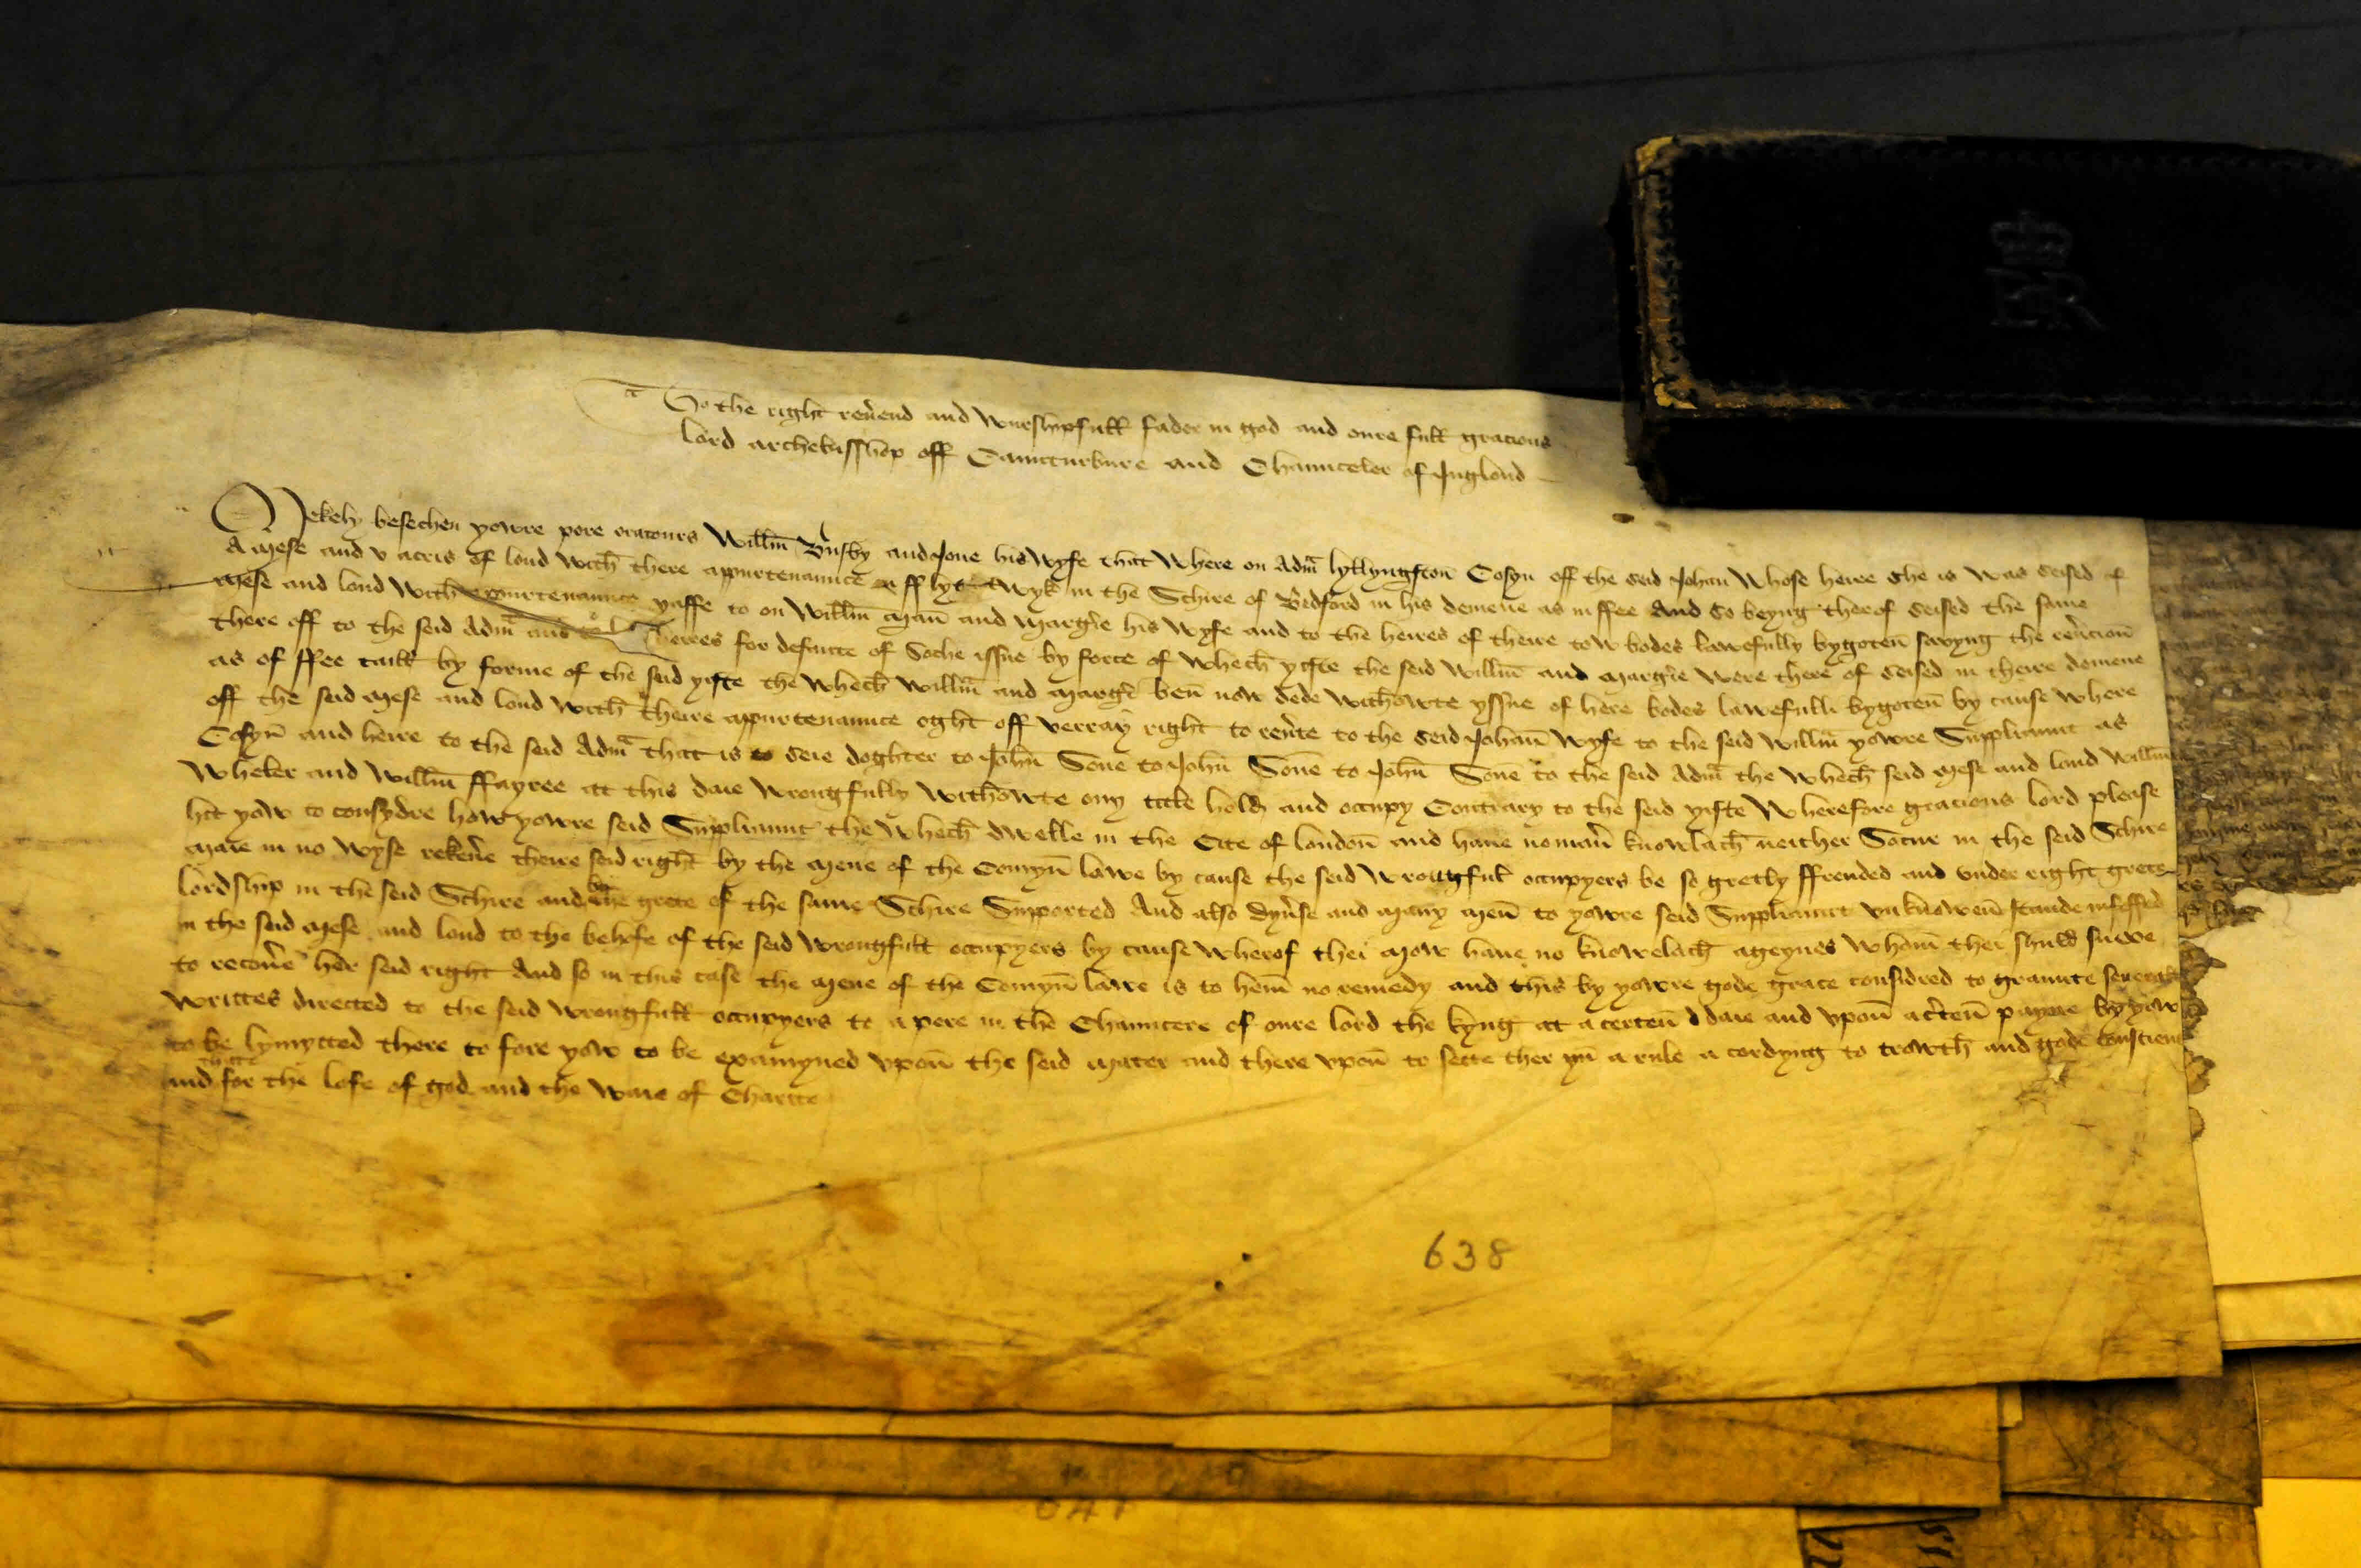 To the right reu̅end and Wurshipfull fader in god and oure full gracious
lord archebusshop off Caunturbure and Chaunceler of Inglond
Mekely besechen yowre pore oratours Will̅m Busby and Jone his Wyfe that Where on Adm̅ lyllyngston̅ Cosyn off the seid Johan Whose heire she is Was seised of
A mese and v acris of lond With there appurtenaunce in fflyt Wyk in the Schire of Bedford in his demene as in ffee And so beyng therof seised the same
mese and lond With appurtenaunce yaffe to on Will̅m Man̅ and Margr̅e his Wyfe and to the heires of theire tow bodes lawefully bygoten̅ savyng the reu̅cion̅
there off to the seid Adm̅ and heires for defaute of Soche issue by force of Whech yifte the seid Will̅m and Margr̅e Were there of seised in theire demene
as of ffee taill by forme of the seid yifte the Whech Will̅m and Margr̅e ben̅ now dede withowte yssue of here bodes lawefulli bygoten̅ by cause where
off the seid mese and lond With theire appurtenaunce oght off verray right to reu̅te to the seid Johan̅ Wyfe to the seid Will̅m yowre Suppliaunt as
Cosyn̅ and heire to the seid Adm̅ that is to seie doghter to John̅ Sone to John̅ Sone to John̅ Sone to the seid Adm̅ the Whech seid mese and lond Will̅m
Wheler and Will̅m ffayree at this daie Wrongfully Withowte ony title hold and occupy Contrary to the seid yifte Wherefore gracious lord please
hit yow to consydre how yowre seid Suppliaunt the Whech dwelle in the Cite of london̅ and haue no man̅ knowlach neither Socur in the seid Schire
maie in no Wyse rekeu̅e theire seid right by the mene of the Comyn̅ lawe by cause the seid Wrongful occupyers be so gretly ffrended and under right grete
lordship in the seid Schire and by the grete of the same Schire Suported And also dyu̅se and many men̅ to yowre seid Suppliaunt vnknowen̅ stande infeffed
in the seid mese and lond to the behefe of the seid Wrongfull occupyers by cause Wherof thei mow haue no knowelach ageynes Whom̅ thei shuld suwe
to recou̅e her seid right And so in this case the mene of the Comyn̅ lawe is to hem̅ no remedy and this by yowre gode grace considred to graunte seuerall
Writtes directed to the seid Wrongfull occupyers to a pere in the Chauncere of oure lord the kyng at a certen̅ daie and vpon̅ a c̅ten̅ payne by yow
to be lymytted there to fore yow to be examyned vpon̅ the seid mater and there vpon̅ to sette ther yn̅ a rule a cordyng to trowth and gode consciens
and that for the lofe of god and the Waie of Charite
638
641